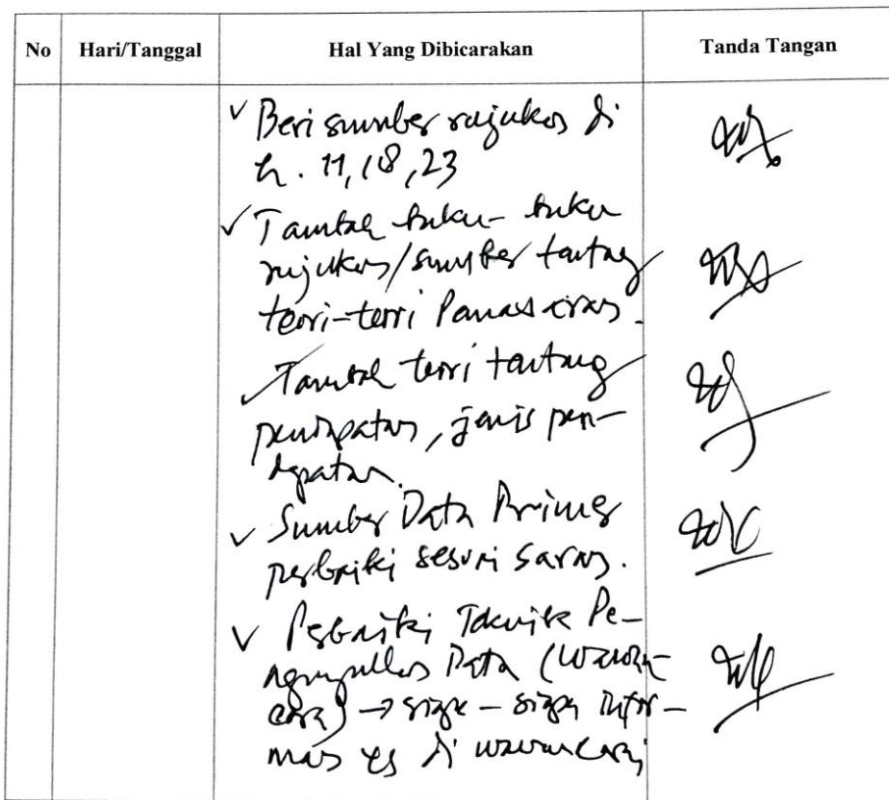 No Hari/Tanggal Hal Yang Dibicarakan Tanda Tangan
✓ Beri sumber rujukan di
h. 11, 18, 23
✓ Tambah buku-buku
rujukan/sumber tentang
teori-teori Pemasaran.
✓ Tambah teori tentang
pendapatan, jenis pen-
dapatan.
✓ Sumber Data Primer
perbaiki sesuai saran.
✓ Perbaiki Teknik Pe-
ngumpulan Data (wawan-
cara) → siapa-siapa infor-
man yg di wawancarai